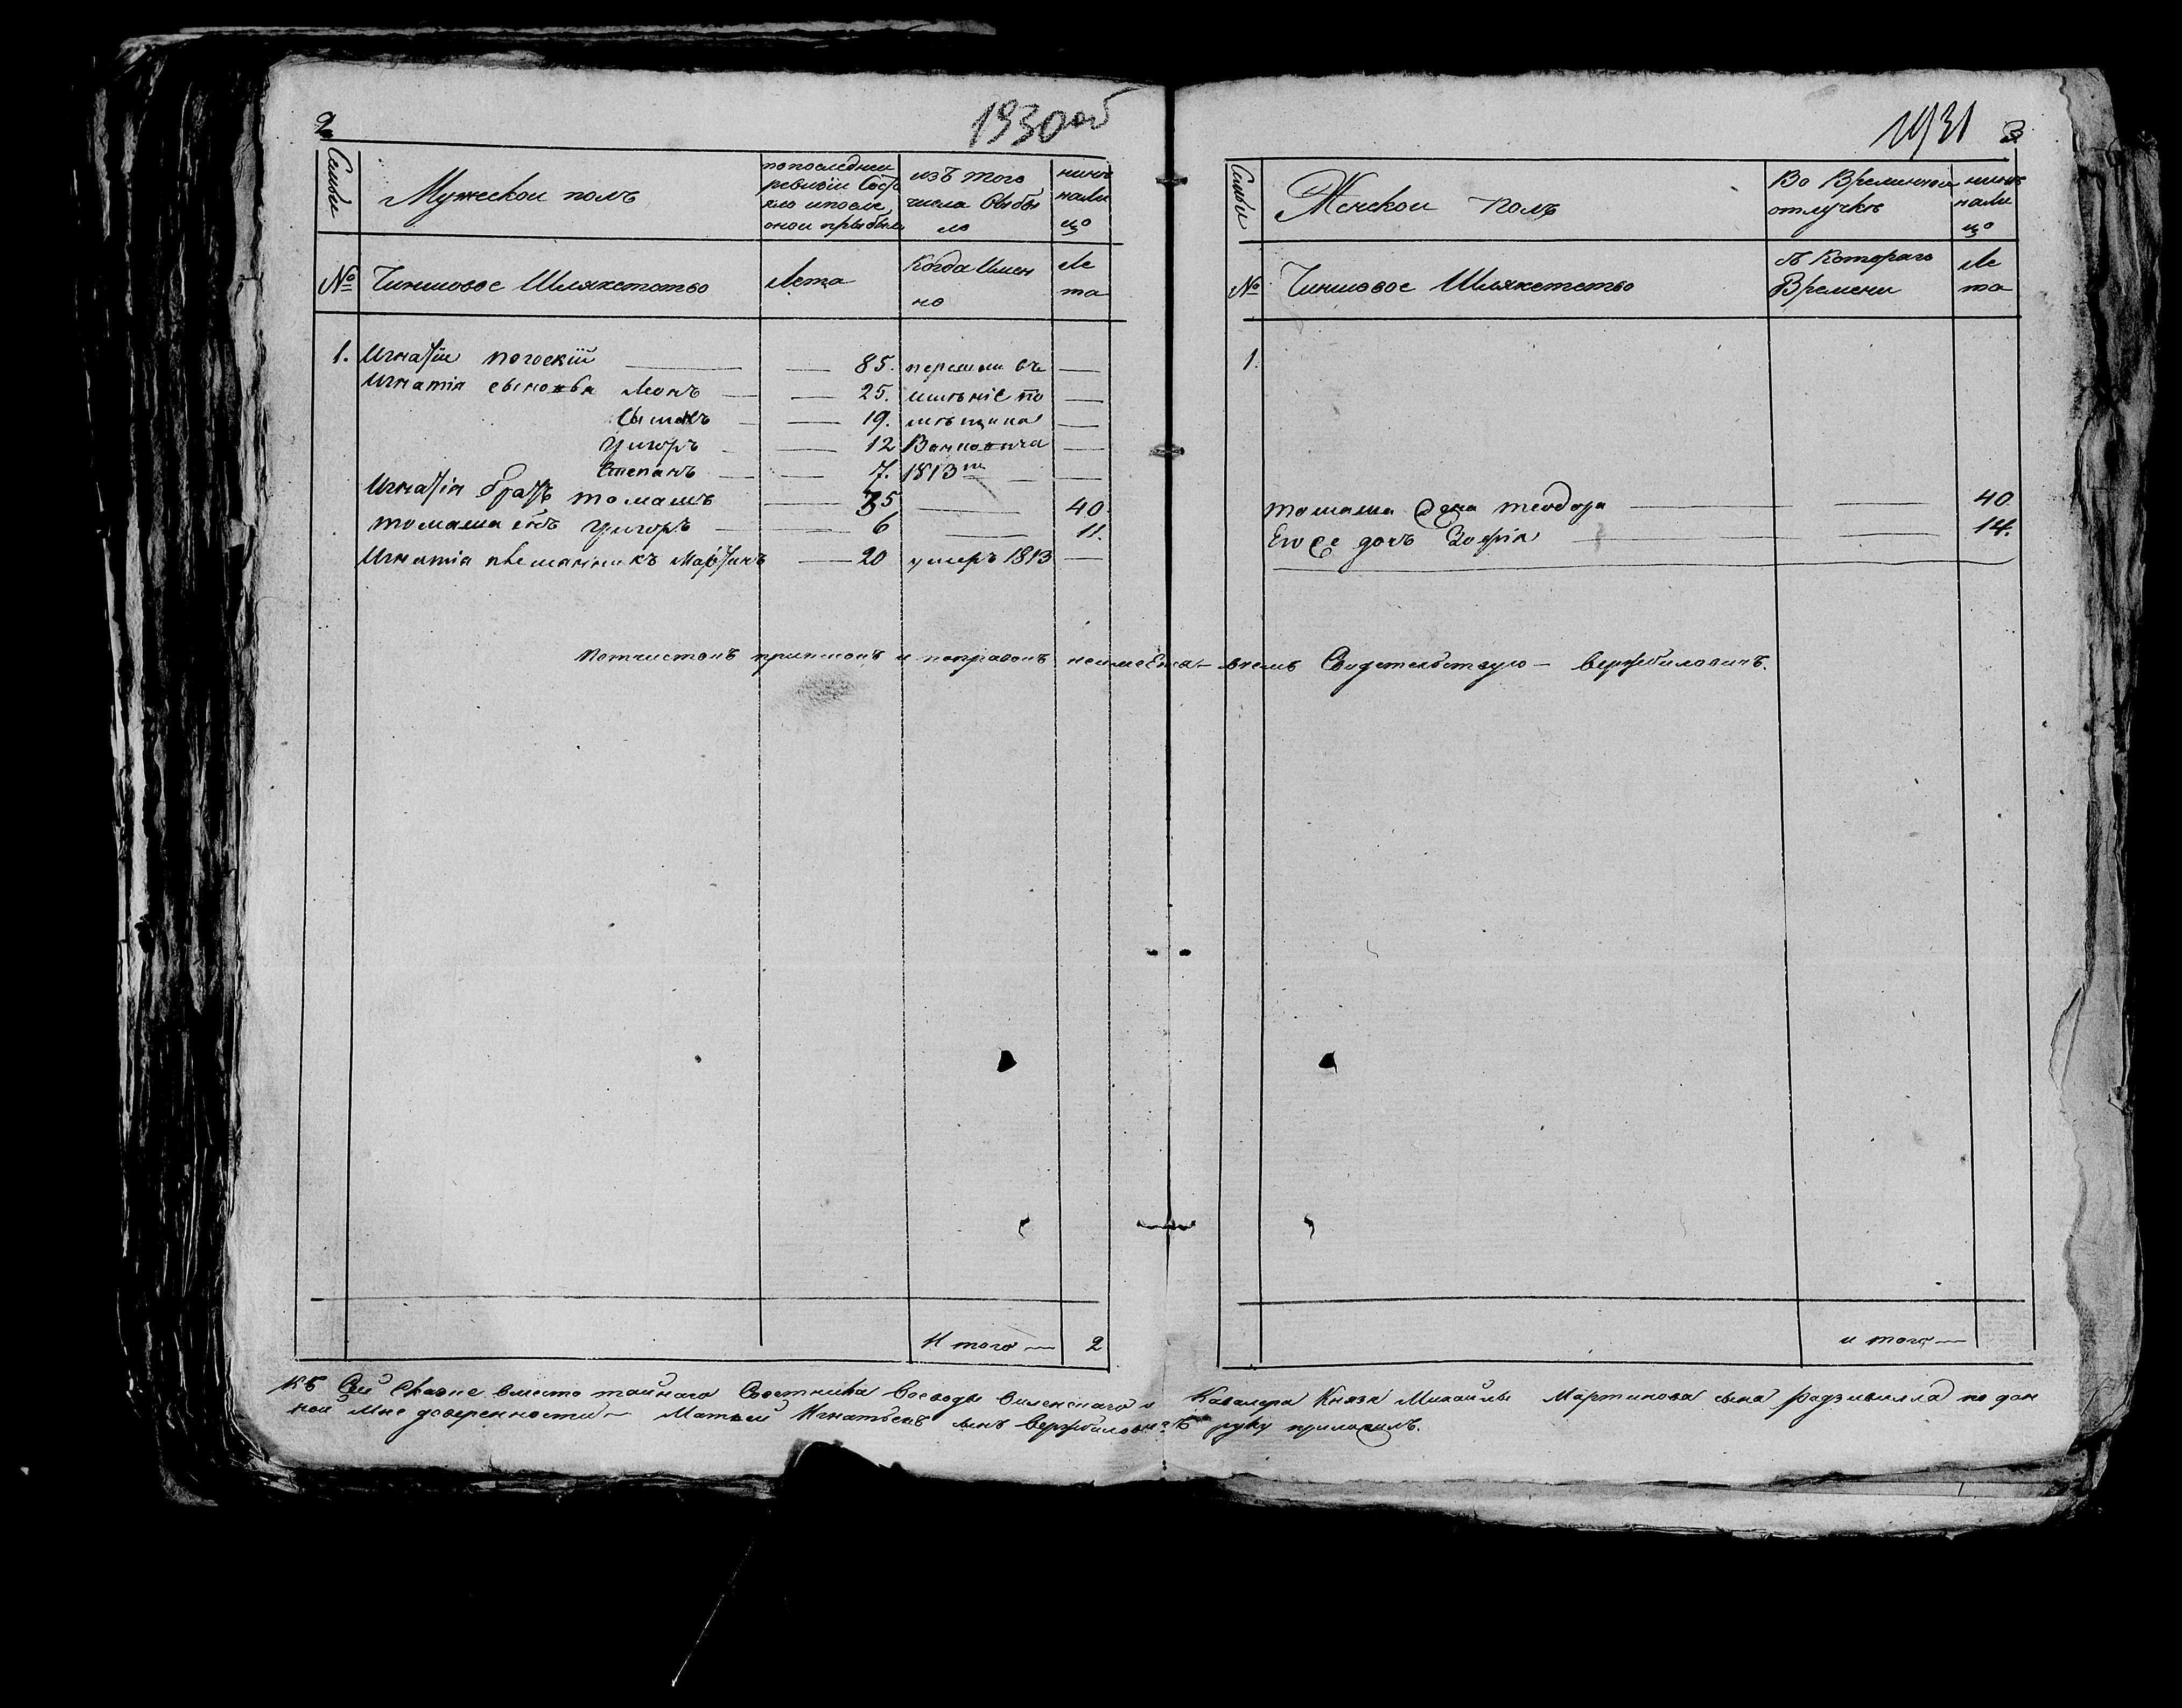 2
1930об
Семьи
Мужеской полъ
попоследней
ревизiи Состо
яло ипосле
оной прыбыло
изъ того
числа Выбы
ло
ныне
нали
цо
№
Чиншовое Шляхетство
Лета
Когда Имен
но
Ле
та
1. Игнатiй погоскiй 85. перешли въ
Игнатiя сыновья Леонъ 25. имънiе по
Сымонъ 19. мъщика
Григоръ 12 Ваньковича
Степанъ 7. 1813го
Игнатiя братъ томашъ 35 40.
томаша сынъ Григоръ 6 11.
Игнатiя племянникъ Мартинъ 20 умеръ 1813
Итого 2
1931 3
Семьи
Женской полъ
Во Временной
отлучке
ныне
нали
цо
№
Чиншовое Шляхетство
Съ Котораго
Времени
Ле
та
1.
томаша жена теодора 40.
Его же дочъ Зофiя 14.
и того
почисткъ приписокъ и поправокъ неимеетца вчемъ Свидетельствую Вержбиловичъ.
Къ Сей Сказке вместо тайнаго Советника Воеводы Виленскаго и Кавалера Князя Михайлы Мартинова сына Радзивилла по дан
ной Мне доверенности Матвей Игнатьевъ сынъ Вержбиловичъ руку приложилъ.